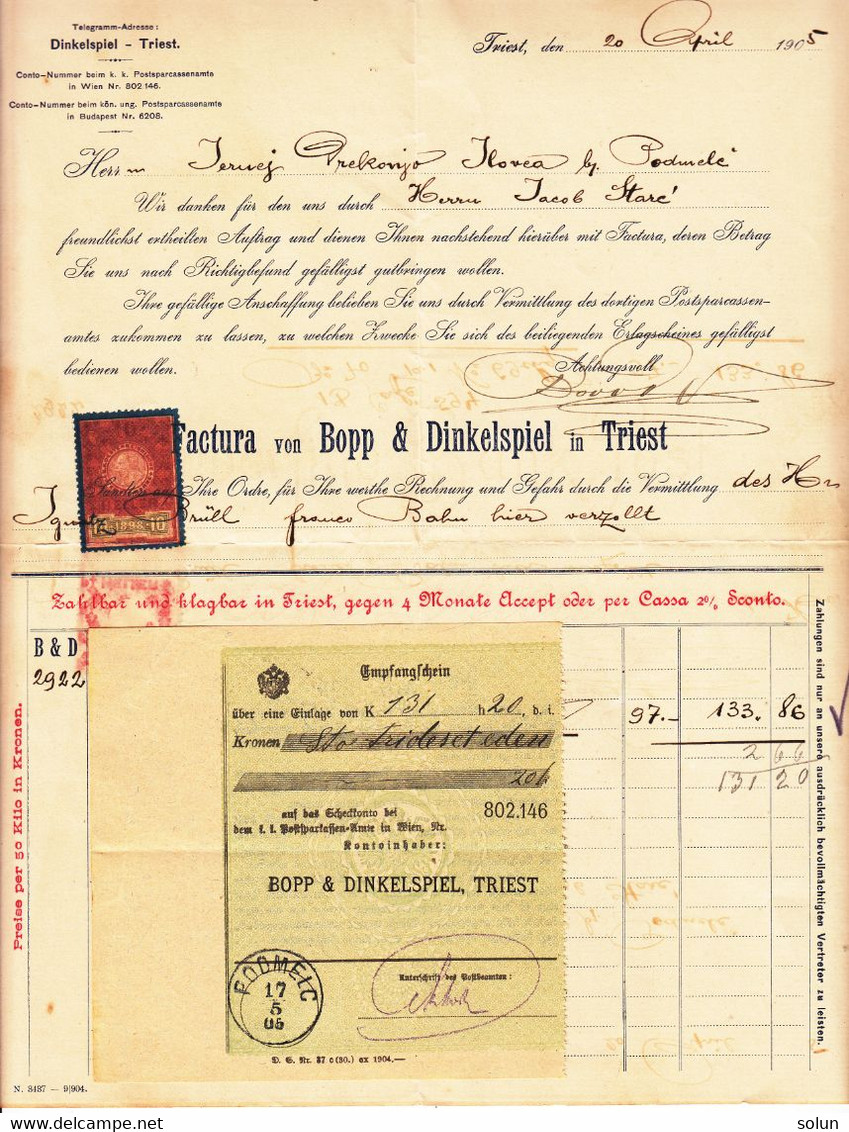 Telegramm-Adresse:
Dinkelspiel – Triest.
Conto-Nummer beim k. k. Postsparcassenamte
in Wien Nr. 802 146.
Conto-Nummer beim kön. ung. Postsparcassenamte
in Budapest Nr. 6208.
Triest, den 20 April 1905
Herrn Jernej Ilovca bj. Podmelč
Wir danken für den uns durch Herrn Jacob Starč
freundlichst ertheilten Auftrag und dienen Ihnen nachstehend hierüber mit Factura, deren Betrag
Sie uns nach Richtigbefund gefälligst gutbringen wollen.
Ihre gefällige Anschaffung belieben Sie uns durch Vermittlung des dortigen Postsparcassen-
amtes zukommen zu lassen, zu welchen Zwecke Sie sich des beiliegenden Erlagscheines gefälligst
bedienen wollen.
Achtungsvoll
Factura von Bopp & Dinkelspiel in Triest
Ihre Ordre, für Ihre werthe Rechnung und Gefahr durch die Vermittlung des Hn
Ignatz Brüll franco Bahn hier verzollt
10 1898 10
Zahlbar und klagbar in Triest, gegen 4 Monate Accept oder per Cassa 2% Sconto.
B & D
2922
Preise per 50 Kilo in Kronen.
97.- 133. 86
2 66
131 20
Zahlungen sind nur an unsere ausdrücklich bevollmächtigten Vertreter zu leisten.
Empfangschein
über eine Einlage von K 131 h 20, d. i.
Kronen Sto trideset eden
20h
auf das Scheckkonto bei
dem k. k. Postsparkassen-Amte in Wien, Nr. 802.146
Kontoinhaber:
BOPP & DINKELSPIEL, TRIEST
PODMELC
17
5
05
Unterschrift des Postbeamten:
D. S. Nr. 37 c (30.) ex 1904.—
N. 3437 — 9|904.
solun